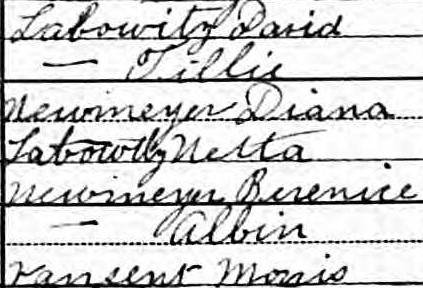 Labowitz David
— Tillie
Newmeyer Diana
Labowitz Netta
Newmeyer Berenice
— Albin
Vansent Morris